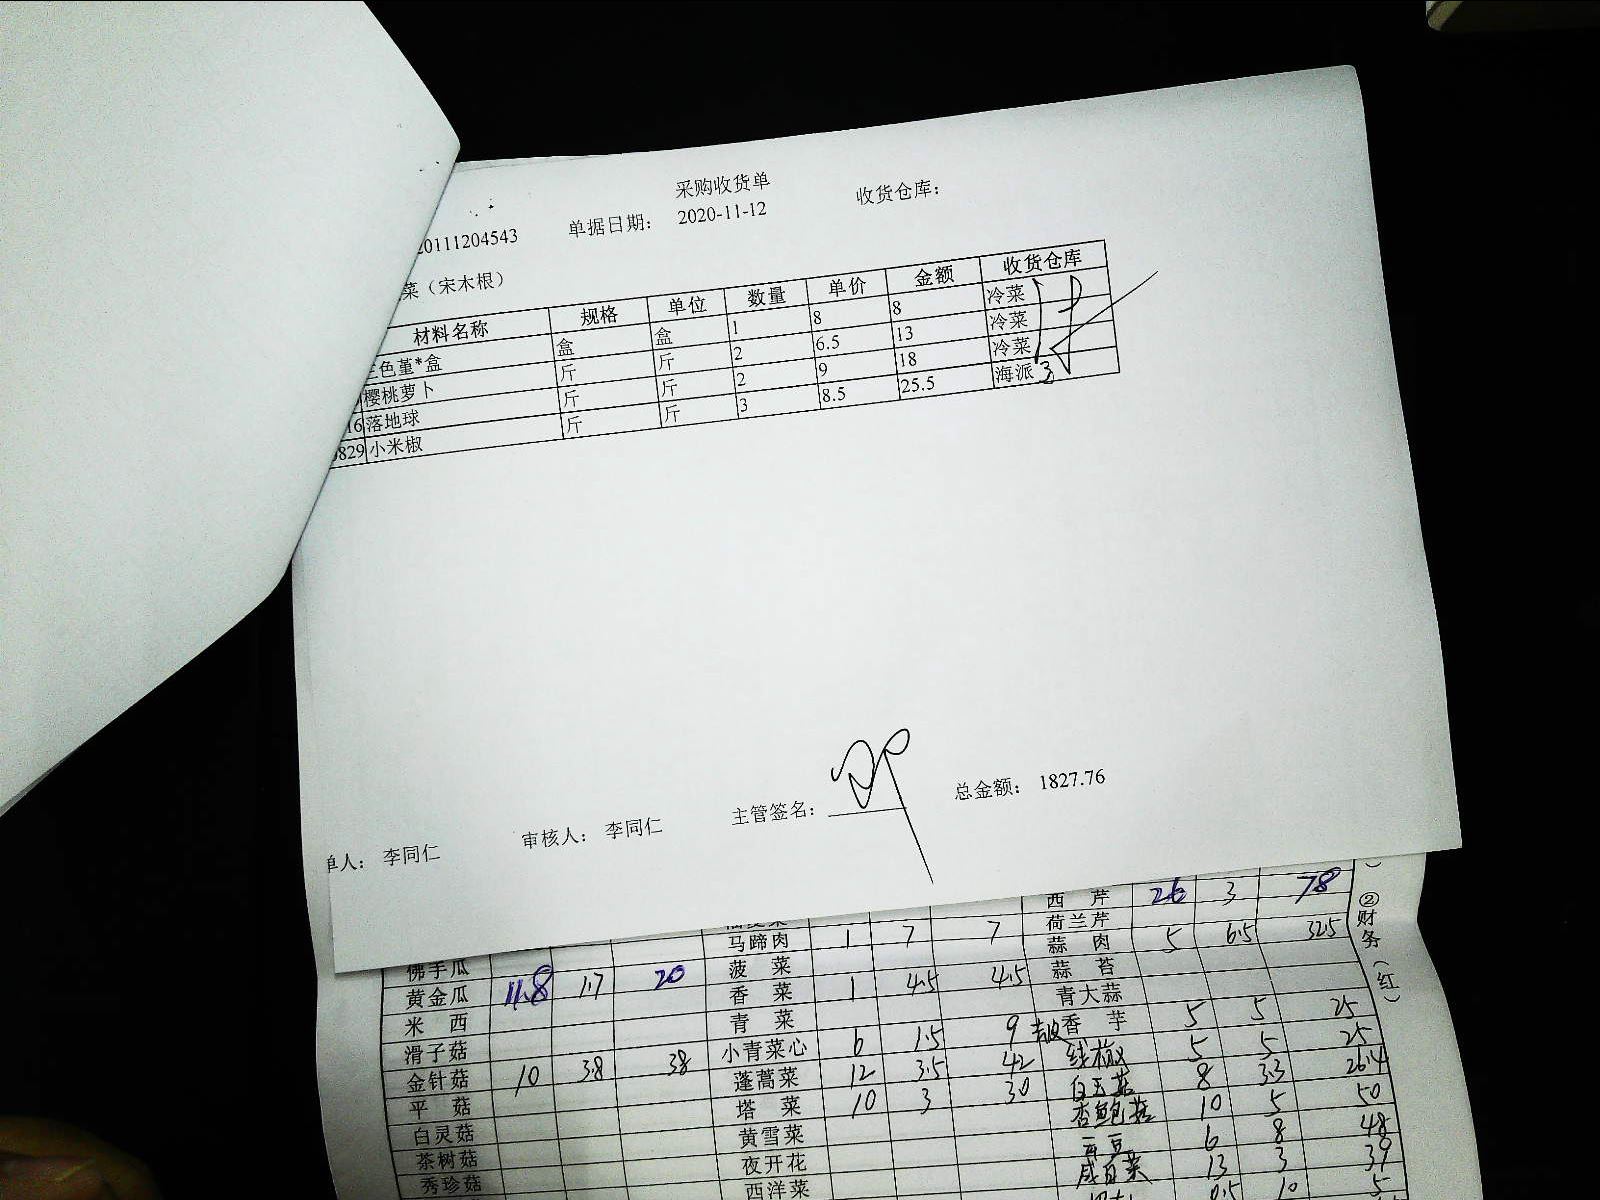 采购收货单
20111204543 单据日期: 2020-11-12 收货仓库:
菜（宋木根）
材料名称 规格 单位 数量 单价 金额 收货仓库
色堇*盒 盒 盒 1 8 8 冷菜
樱桃萝卜 斤 斤 2 6.5 13 冷菜
16 落地球 斤 斤 2 9 18 冷菜
829 小米椒 斤 斤 3 8.5 25.5 海派
单人: 李同仁 审核人: 李同仁 主管签名: 总金额: 1827.76
西芹 26 3 78
马蹄肉 1 7 7 荷兰芹
佛手瓜 菠菜 蒜肉 5 6.5 32.5
黄金瓜 11.8 1.7 20 香菜 1 4.5 4.5 蒜苔
米西 青菜 青大蒜
滑子菇 小青菜心 6 1.5 9 香芋 5 5 25
金针菇 10 3.8 38 蓬蒿菜 12 3.5 42 线椒 5 5 25
平菇 塔菜 10 3 30 白玉菇 8 3.3 26.4
白灵菇 黄雪菜 杏鲍菇 10 5 50
茶树菇 夜开花 6 8 48
秀珍菇 西洋菜 13 3 39
0.5 10 5
②财务(红)